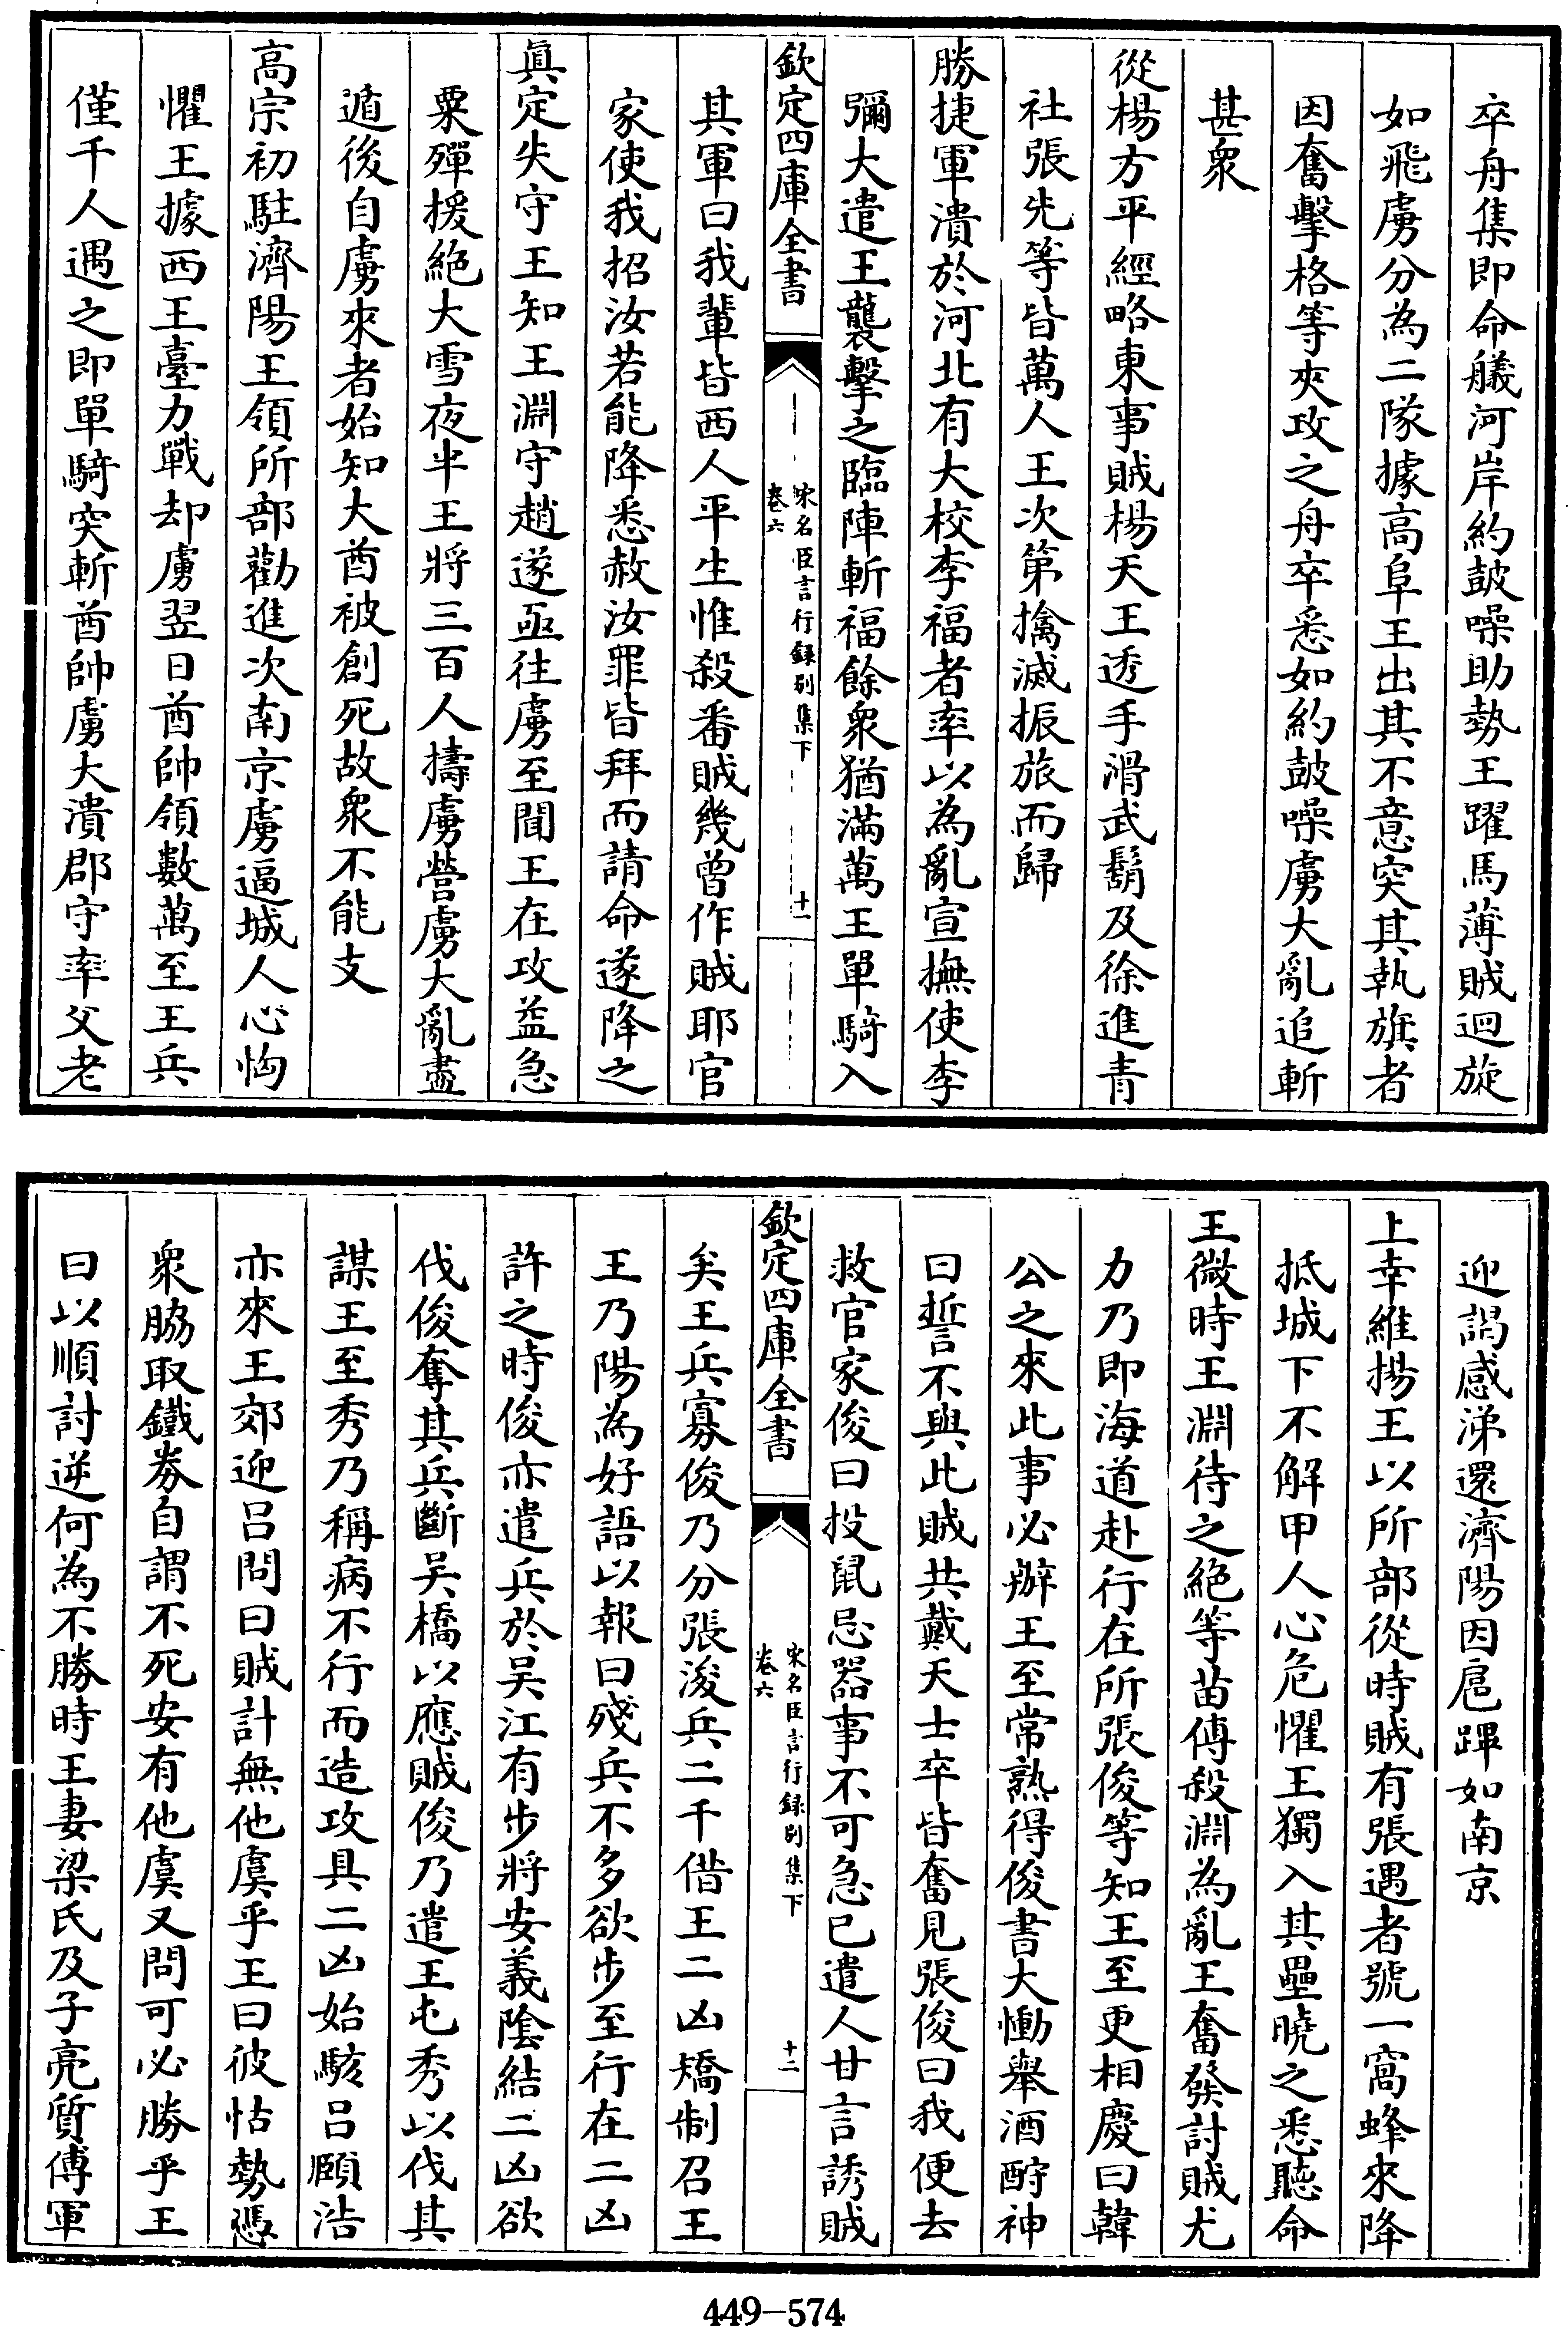 卒舟集即命艤河岸約鼓噪助勢王躍馬薄賊迴旋
如飛虜分為二隊據高阜王出其不意突其執旗者
因奮擊格等夾攻之舟卒悉如約鼓噪虜大亂追斬
甚衆
從楊方平經略東事賊楊天王透手滑武鬍及徐進青
社張先等皆萬人王次第擒滅振旅而歸
勝捷軍潰於河北有大校李福者率以為亂宣撫使李
彌大遣王襲擊之臨陣斬福餘衆猶滿萬王單騎入
欽定四庫全書
宋名臣言行録别集下
卷六
十一
其軍曰我輩皆西人平生惟殺番賊幾曾作賊耶官
家使我招汝若能降悉赦汝罪皆拜而請命遂降之
真定失守王知王淵守趙遂亟往虜至聞王在攻益急
粟殫援絶大雪夜半王將三百人擣虜營虜大亂盡
遁後自虜來者始知大酋被創死故衆不能支
高宗初駐濟陽王領所部勸進次南京虜逼城人心恟
懼王據西王臺力戰却虜翌日酋帥領數萬至王兵
僅千人遇之即單騎突斬酋帥虜大潰郡守率父老
迎謁感涕還濟陽因扈蹕如南京
上幸維揚王以所部從時賊有張遇者號一窩蜂來降
抵城下不解甲人心危懼王獨入其壘曉之悉聽命
王微時王淵待之絶等苗傅殺淵為亂王奮發討賊尤
力乃即海道赴行在所張俊等知王至更相慶曰韓
公之來此事必辦王至常熟得俊書大慟舉酒酹神
曰誓不與此賊共戴天士卒皆奮見張俊曰我便去
救官家俊曰投鼠忌器事不可急已遣人甘言誘賊
欽定四庫全書
宋名臣言行録别集下
卷六
十二
矣王兵寡俊乃分張浚兵二千借王二凶矯制召王
王乃陽為好語以報曰殘兵不多欲步至行在二凶
許之時俊亦遣兵於吳江有步將安義陰結二凶欲
伐俊奪其兵斷吳橋以應賊俊乃遣王屯秀以伐其
謀王至秀乃稱病不行而造攻具二凶始駭呂頤浩
亦來王郊迎呂問曰賊計無他虞乎王曰彼怙勢憑
衆脇取鐵券自謂不死安有他虞又問可必勝乎王
曰以順討逆何為不勝時王妻梁氏及子亮質傅軍
449-574